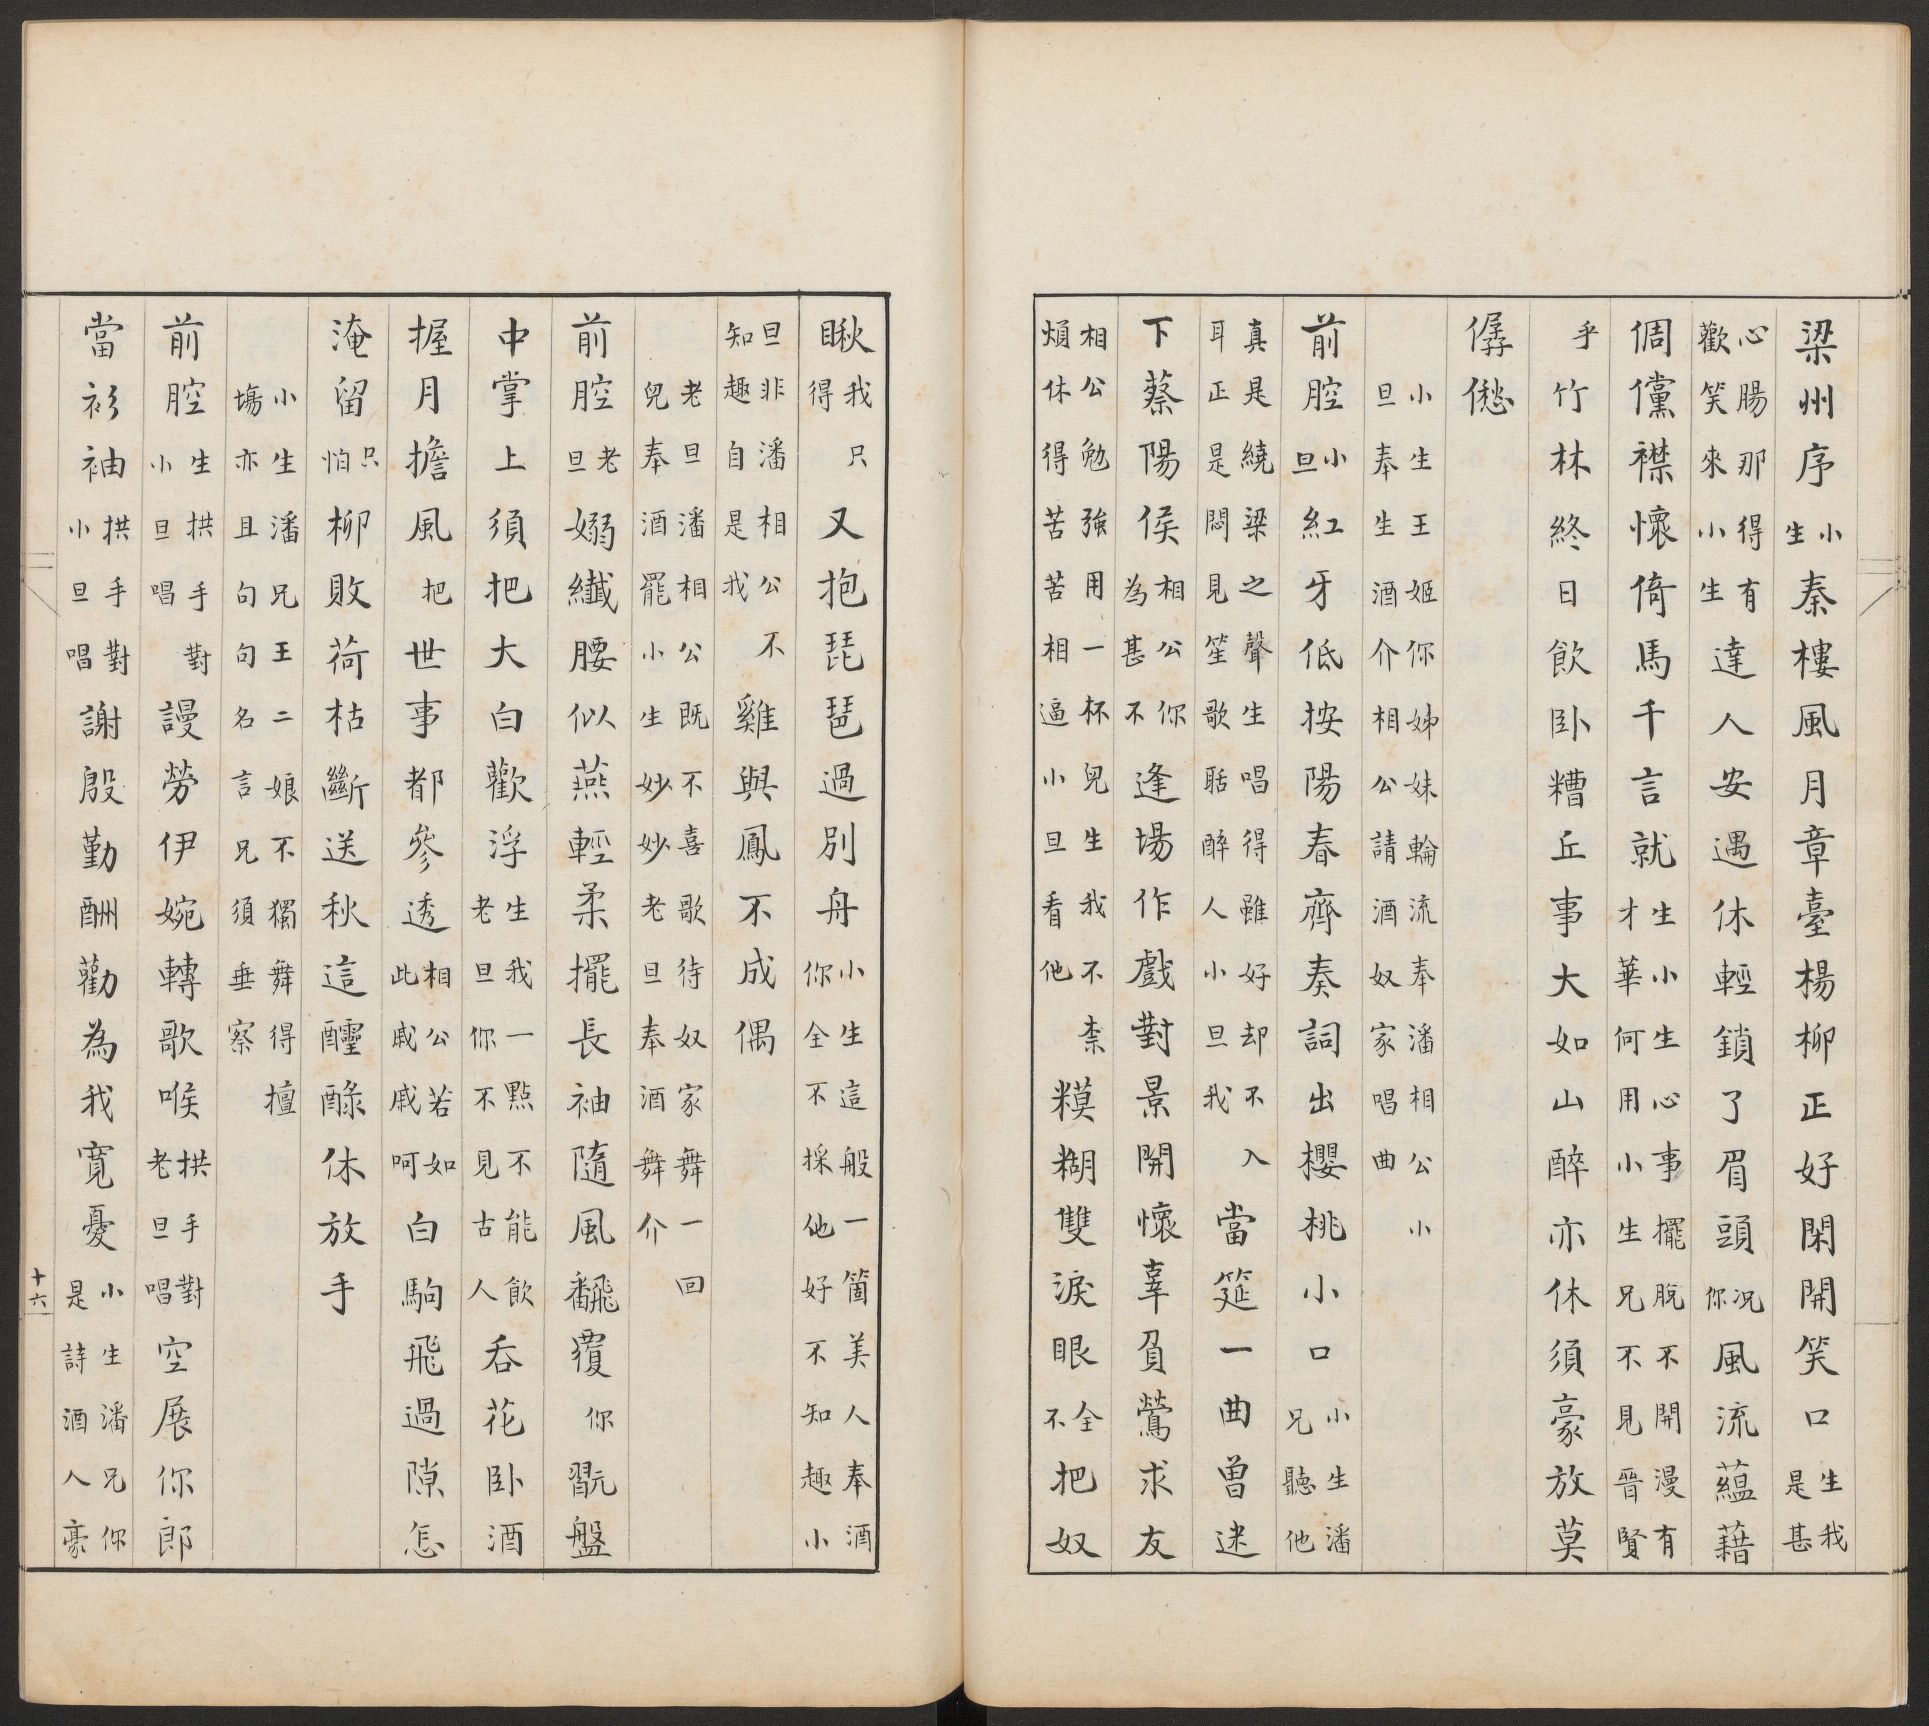 梁州序小生秦樓風月章臺楊柳正好閑開笑口生我是甚
心腸那得有歡笑來小生達人安遇休輕鎖了眉頭況你風流蘊藉
倜儻襟懷倚馬千言就生小生心事擺脫不開漫有才華何用小生兄不見晉賢
乎竹林終日飲卧糟丘事大如山醉亦休須豪放莫
僝僽
小生王姬你姊妹輪流奉潘相公小旦奉生酒介相公請酒奴家唱曲
前腔小旦紅牙低按陽春齊奏詞出櫻桃小口小生潘兄聽他
真是繞梁之聲生唱得雖好却不入耳正是悶見笙歌聒醉人小旦我當筵一曲曾迷
下蔡陽侯相公你為甚不逢場作戲對景開懷辜負鶯求友
相公勉強用一杯兒生我不柰煩休得苦苦相逼小旦看他糢糊雙淚眼全不把奴
瞅我只得又抱琵琶過別舟小生這般一箇美人奉酒你全不採他好不知趣小
旦非潘相公不知趣自是我雞與鳳不成偶
老旦潘相公既不喜歌待奴家舞一回兒奉酒罷小生妙妙老旦奉酒舞介
前腔老旦嫋纖腰似燕輕柔擺長袖隨風飜覆你翫盤
中掌上須把大白歡浮生我一點不能飲老旦你不見古人吞花卧酒
握月擔風把世事都參透相公若如此戚戚呵白駒飛過隙怎
淹留只怕柳敗荷枯斷送秋這醽醁休放手
小生潘兄王二娘不獨舞得擅塲亦且句句名言兄須垂察
前腔生拱手對小旦唱謾勞伊婉轉歌喉拱手對老旦唱空展你郎
當衫袖拱手對小旦唱謝殷勤酬勸為我寬憂小生潘兄你是詩酒人豪
十六